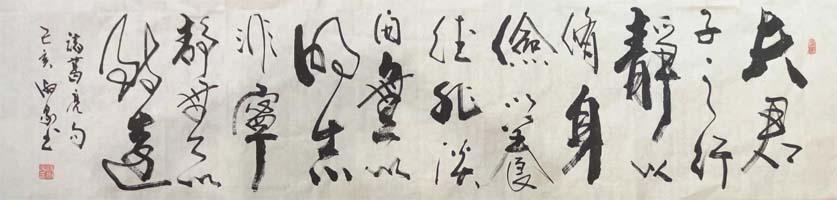 夫君
子之行
靜以
脩身
儉以養
德非淡
泊無以
明志
非寧
靜無以
致遠
諸葛亮句
己亥